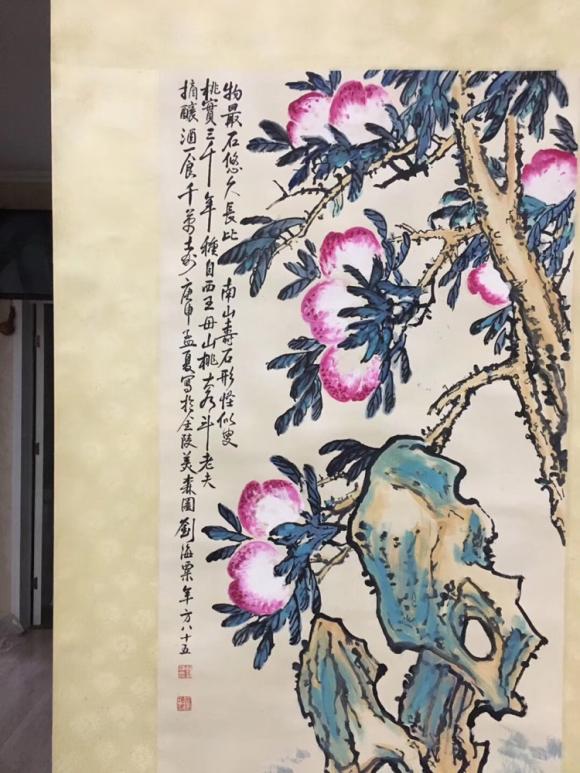 物最石悠久長比　南山壽石形怪似叟
桃實三千年種自西王母山桃大如斗老夫
摘釀酒一食千萬壽庚申孟夏寫於金陵美森園劉海粟年方八十五